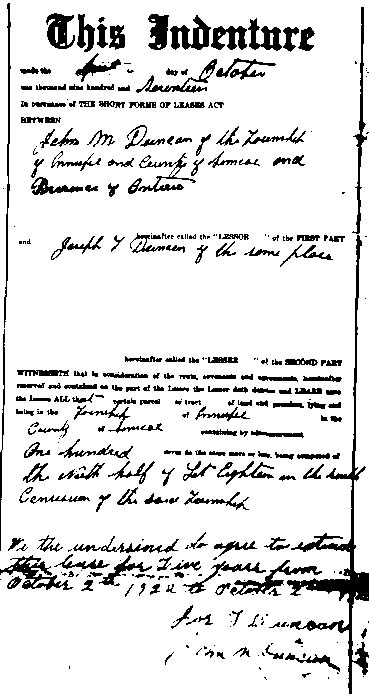 This Indenture
made the first day of October
one thousand nine hundred and Seventeen
In pursuance of THE SHORT FORMS OF LEASES ACT
BETWEEN
John M Duncan of the Township
of Innisfil and County of Simcoe and
Province of Ontario
hereinafter called the "LESSOR " of the FIRST PART
and Joseph T Duncan of the same place
hereinafter called the "LESSEE " of the SECOND PART
WITNESSETH that in consideration of the rents, covenants and agreements, hereinafter
reserved and contained on the part of the Lessee the Lessor doth demise and LEASE unto
the Lessee ALL that certain parcel or tract of land and premises, lying and
being in the Township of Innisfil in the
County of Simcoe containing by admeasurement
One hundred acres be the same more or less, being composed of
the North half of Lot Eighteen in the
Concession of the said Township
We the undersigned do agree to extend
this lease for Five years from
October 2nd 1922 to October 2
Jos T Duncan
John M Duncan